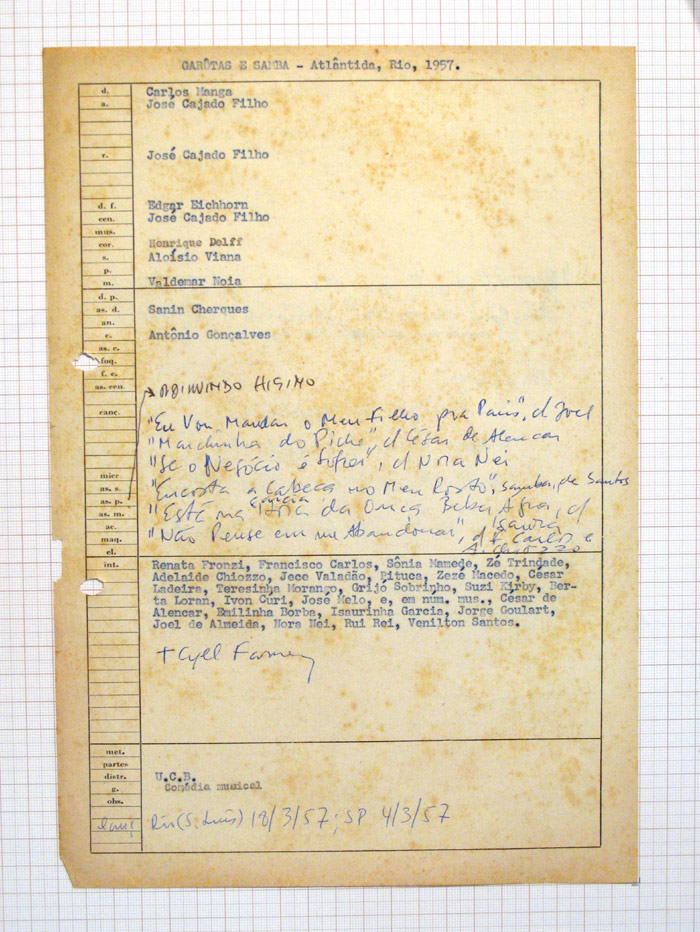 GARÔTAS E SAMBA - Atlântida, Rio, 1957.
d. Carlos Manga
a. José Cajado Filho
r. José Cajado Filho
d. f. Edgar Eichhorn
cen. José Cajado Filho
mus.
cor. Henrique Delff
s. Aloísio Viana
p.
m. Valdemar Noia
d. p.
as. d. Sanin Cherques
an.
c. Antônio Gonçalves
as. c.
foq.
f. c.
as. cen.
HIGINO
canc.
"Eu Vou Mandar o Meu Filho pra Paris", d Joel
"Marchinha do Piche", d César de Alencar
"Se o Negócio é Sofrer", d Nora Nei
micr.
as. s. "Encosta a Cabeça no Meu Rosto", samba, de Santos
as. p. "Está na da Onça Beber Água, d
as. m. Isaura
ac. "Não Pense em me Abandonar", d F. Carlos e
maq. A. Chiozzo
el.
int. Renata Fronzi, Francisco Carlos, Sônia Mamede, Zé Trindade,
Adelaide Chiozzo, Jece Valadão, Pituca, Zezé Macedo, César
Ladeira, Teresinha Morango, Grijó Sobrinho, Suzi Kirby, Ber-
ta Loran, Ivon Curi, José Melo, e, em num. mus., César de
Alencar, Emilinha Borba, Isaurinha Garcia, Jorge Goulart,
Joel de Almeida, Nora Nei, Rui Rei, Venilton Santos.
+ Cyll Farney
met.
partes
distr. U.C.B.
g. Comédia musical
obs.
lanç Rio (S. Luis) 18/3/57; SP 4/3/57